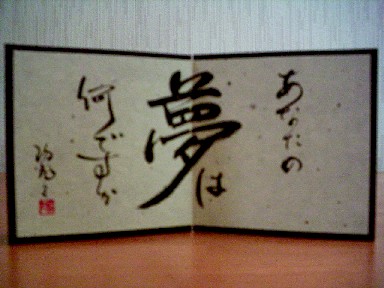 あなたの
夢は
何ですか